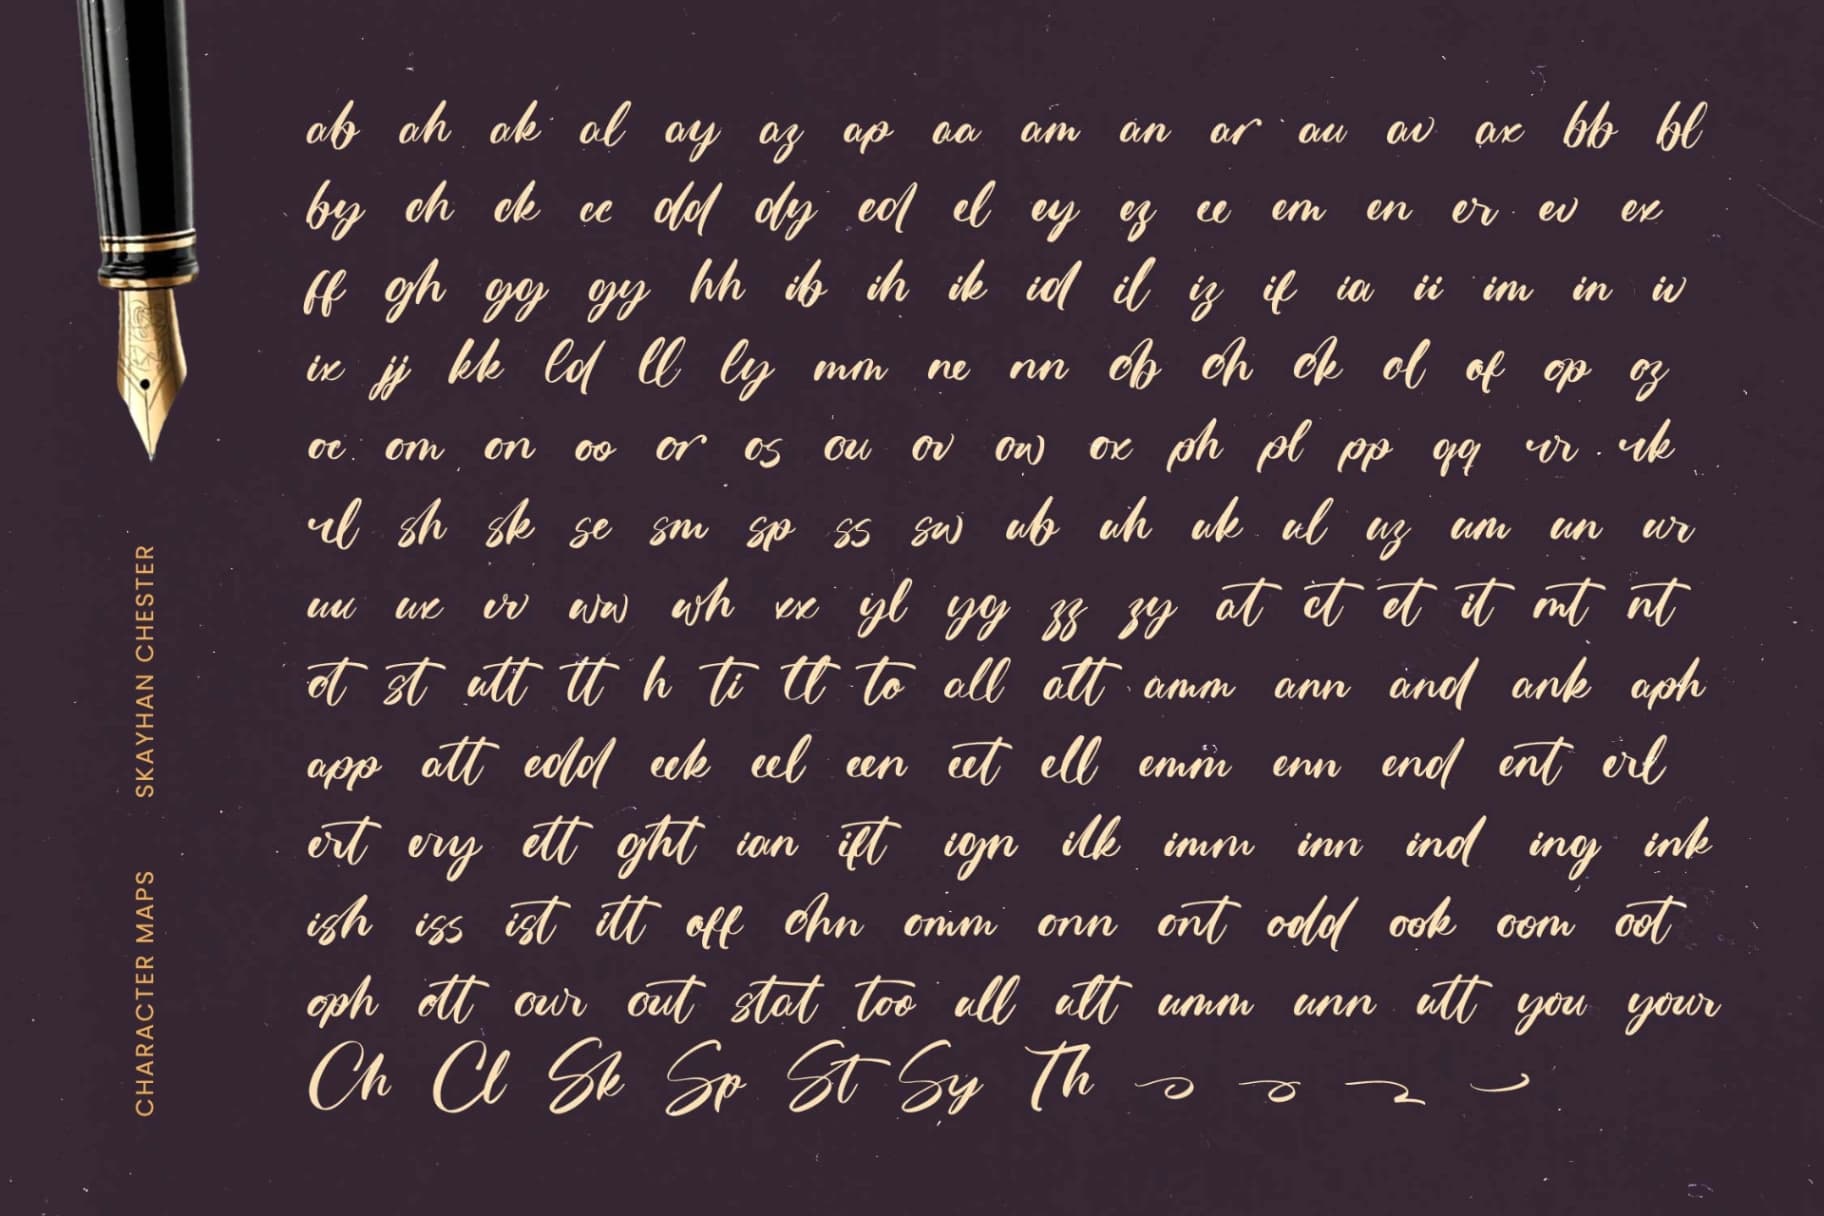 ab ah ak al ay az ap aa am an ar au av ax bb bl
by ch ck cc dd dy ed el ey ez ee em en er ev ex
ff gh gg gy hh ib ih ik id il iz if ia ii im in iv
ix jj kk ld ll ly mm ne nn ob oh ok ol of op oz
oc om on oo or os ou ov ow ox ph pl pp qq rr rk
rl sh sk se sm sp ss sw ub uh uk ul uz um un ur
uu ux vv ww wh xx yl yg zz zy at ct et it mt nt
ot st utt tt h ti tl to all alt amm ann and ank aph
app att edd eek eel een eet ell emm enn end ent erl
ert ery ett ght ian ift ign ilk imm inn ind ing ink
ish iss ist itt off ohn omm onn ont odd ook oom oot
oph ott our out stat too ull ult umm unn utt you your
Ch Cl Sk Sp St Sy Th
SKAYHAN CHESTER
CHARACTER MAPS